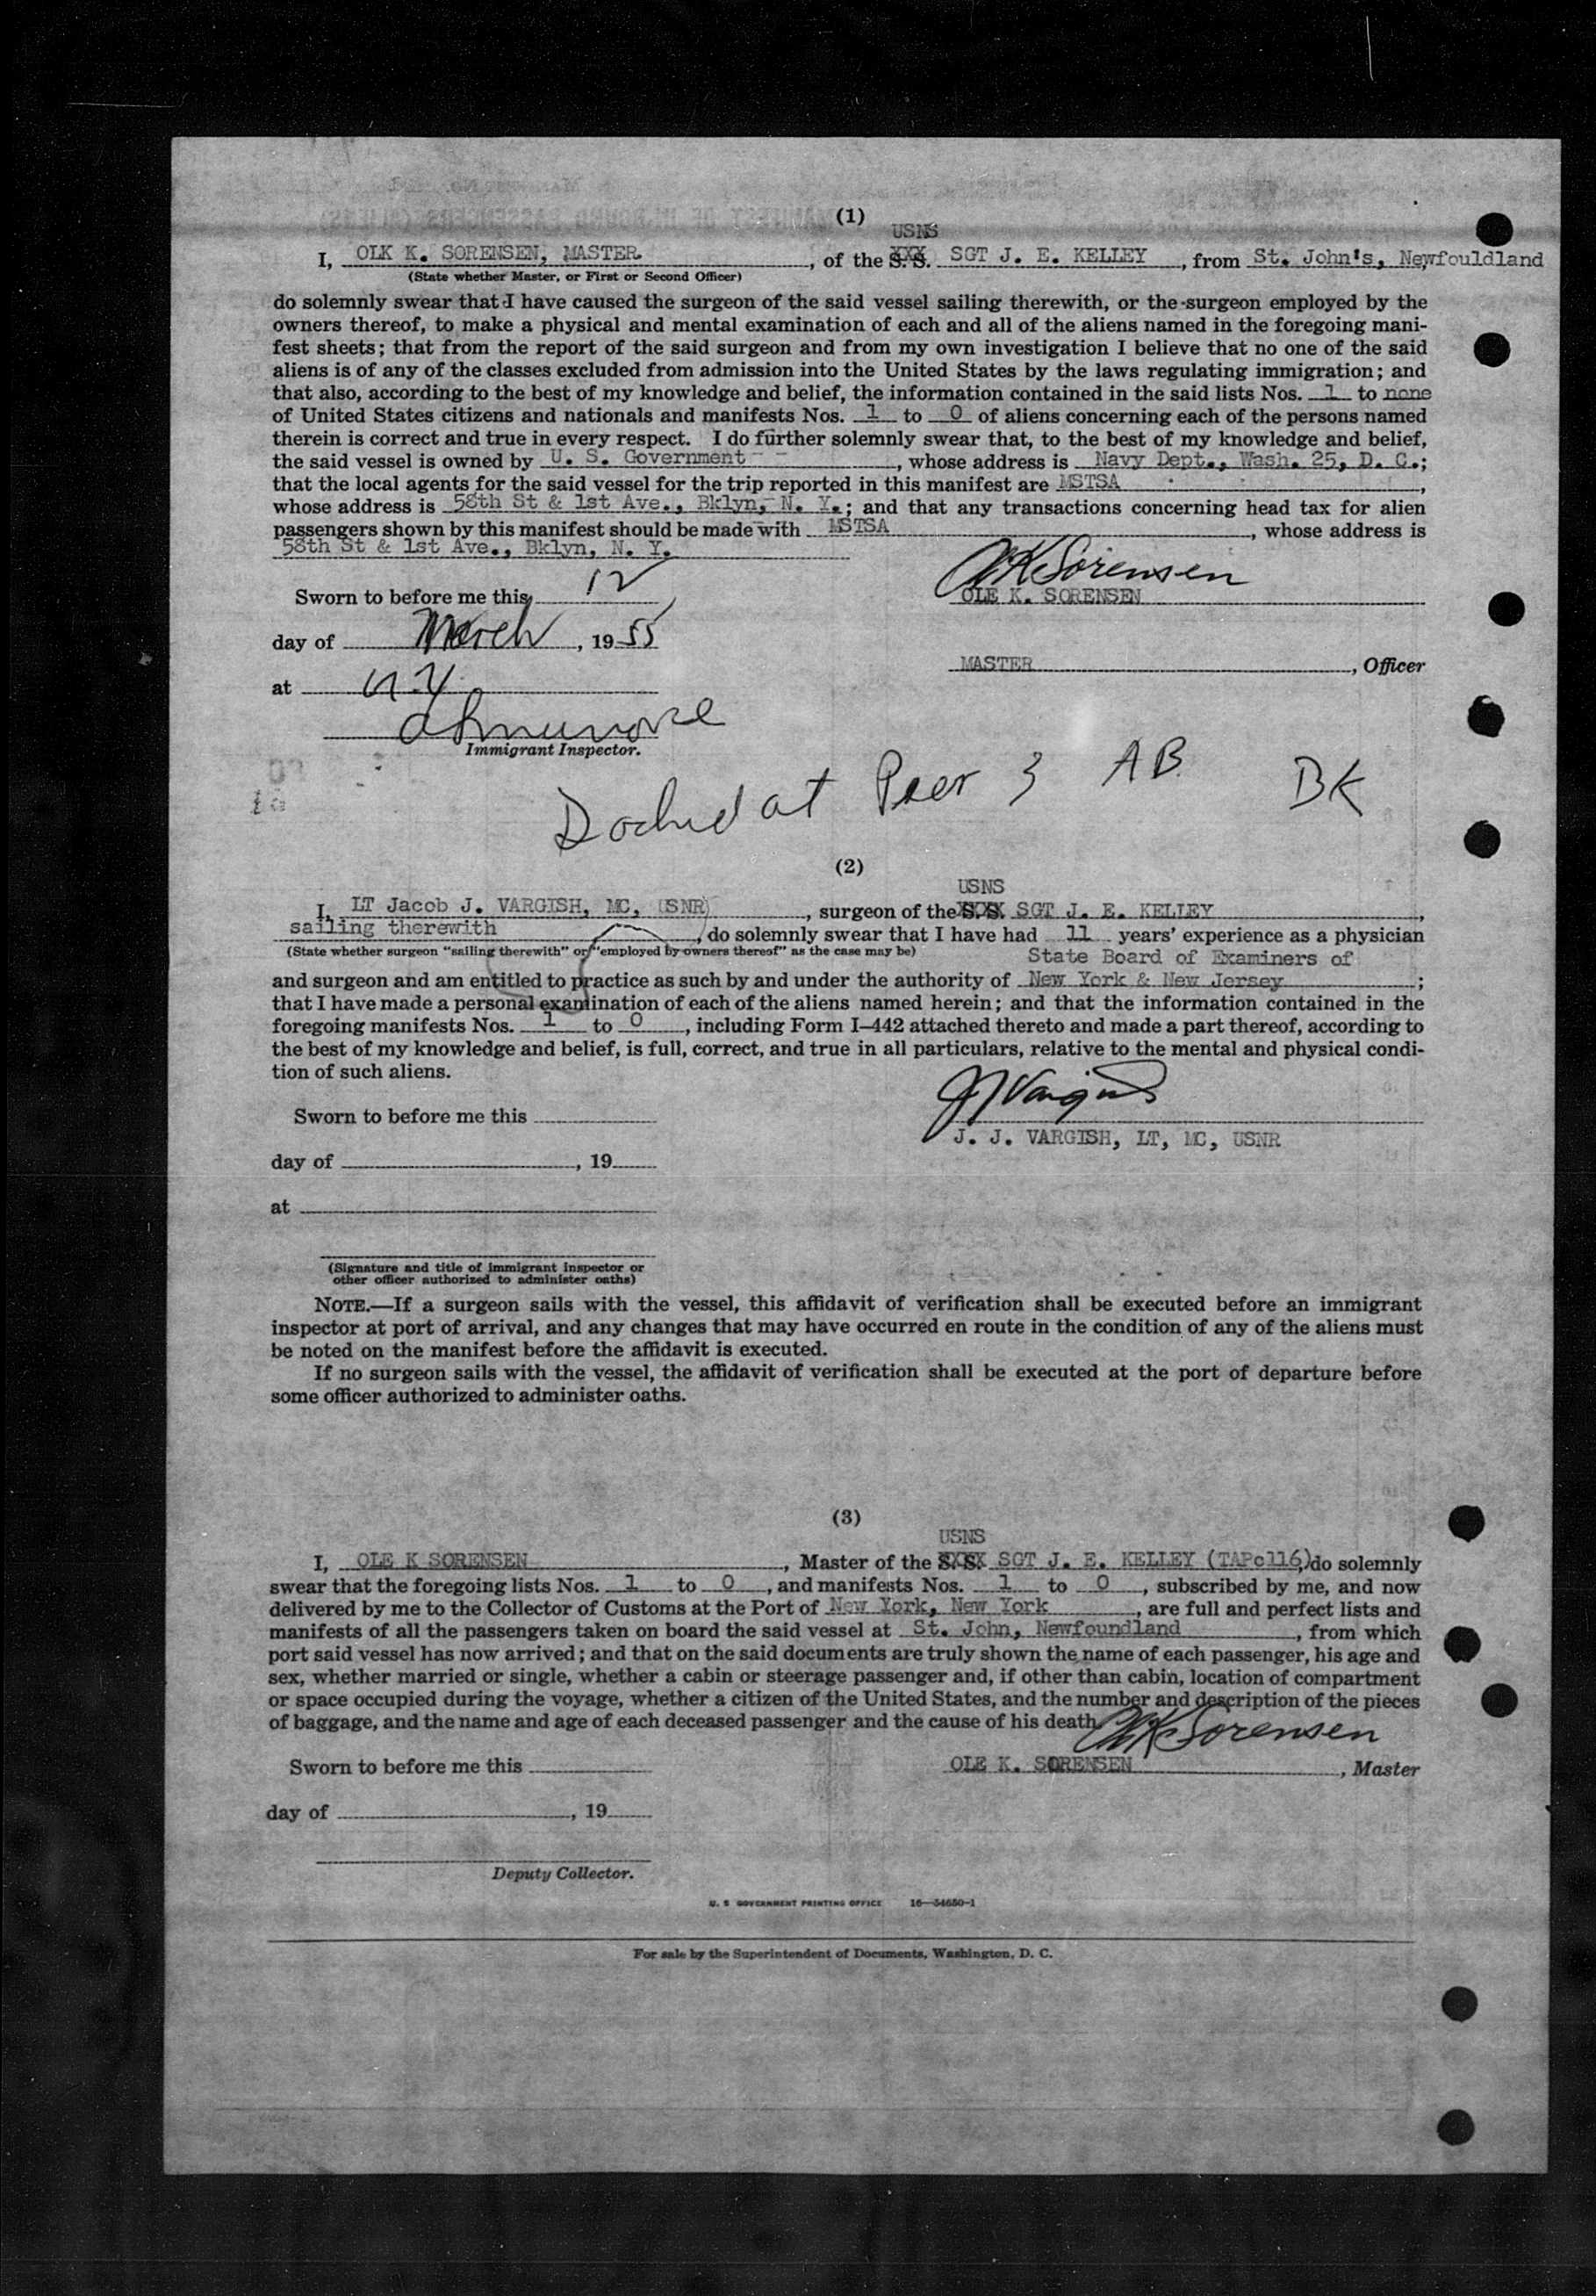 (1)
USNS
I, OLK K. SORENSEN, MASTER , of the S.S. SGT J. E. KELLEY , from St. John's, Newfouldland
(State whether Master, or First or Second Officer)
do solemnly swear that I have caused the surgeon of the said vessel sailing therewith, or the surgeon employed by the
owners thereof, to make a physical and mental examination of each and all of the aliens named in the foregoing mani-
fest sheets; that from the report of the said surgeon and from my own investigation I believe that no one of the said
aliens is of any of the classes excluded from admission into the United States by the laws regulating immigration; and
that also, according to the best of my knowledge and belief, the information contained in the said lists Nos. 1 to none
of United States citizens and nationals and manifests Nos. 1 to 0 of aliens concerning each of the persons named
therein is correct and true in every respect. I do further solemnly swear that, to the best of my knowledge and belief,
the said vessel is owned by U. S. Government , whose address is Navy Dept., Wash. 25, D. C.;
that the local agents for the said vessel for the trip reported in this manifest are MSTSA ,
whose address is 58th St & 1st Ave., Bklyn, N. Y.; and that any transactions concerning head tax for alien
passengers shown by this manifest should be made with MSTSA , whose address is
58th St & 1st Ave., Bklyn, N. Y.
Sworn to before me this 12
OKSorensen
OLE K. SORENSEN
day of March , 1955
MASTER , Officer
at N.Y.
Immigrant Inspector.
Docked at Peer 3 AB BK
(2)
USNS
I, LT Jacob J. VARGISH, MC, USNR , surgeon of the S.S. SGT J. E. KELLEY ,
sailing therewith , do solemnly swear that I have had 11 years' experience as a physician
(State whether surgeon "sailing therewith" or "employed by owners thereof" as the case may be)
State Board of Examiners of
and surgeon and am entitled to practice as such by and under the authority of New York & New Jersey ;
that I have made a personal examination of each of the aliens named herein; and that the information contained in the
foregoing manifests Nos. 1 to 0 , including Form I-442 attached thereto and made a part thereof, according to
the best of my knowledge and belief, is full, correct, and true in all particulars, relative to the mental and physical condi-
tion of such aliens.
JJVargish
Sworn to before me this
J. J. VARGISH, LT, MC, USNR
day of , 19
at
(Signature and title of immigrant inspector or
other officer authorized to administer oaths)
NOTE.—If a surgeon sails with the vessel, this affidavit of verification shall be executed before an immigrant
inspector at port of arrival, and any changes that may have occurred en route in the condition of any of the aliens must
be noted on the manifest before the affidavit is executed.
If no surgeon sails with the vessel, the affidavit of verification shall be executed at the port of departure before
some officer authorized to administer oaths.
(3)
USNS
I, OLE K SORENSEN , Master of the S.S. SGT J. E. KELLEY (TAPc116,) do solemnly
swear that the foregoing lists Nos. 1 to 0 , and manifests Nos. 1 to 0 , subscribed by me, and now
delivered by me to the Collector of Customs at the Port of New York, New York , are full and perfect lists and
manifests of all the passengers taken on board the said vessel at St. John, Newfoundland , from which
port said vessel has now arrived; and that on the said documents are truly shown the name of each passenger, his age and
sex, whether married or single, whether a cabin or steerage passenger and, if other than cabin, location of compartment
or space occupied during the voyage, whether a citizen of the United States, and the number and description of the pieces
of baggage, and the name and age of each deceased passenger and the cause of his death
OKSorensen
Sworn to before me this
OLE K. SORENSEN , Master
day of , 19
Deputy Collector.
U. S GOVERNMENT PRINTING OFFICE 16—54650-1
For sale by the Superintendent of Documents, Washington, D. C.